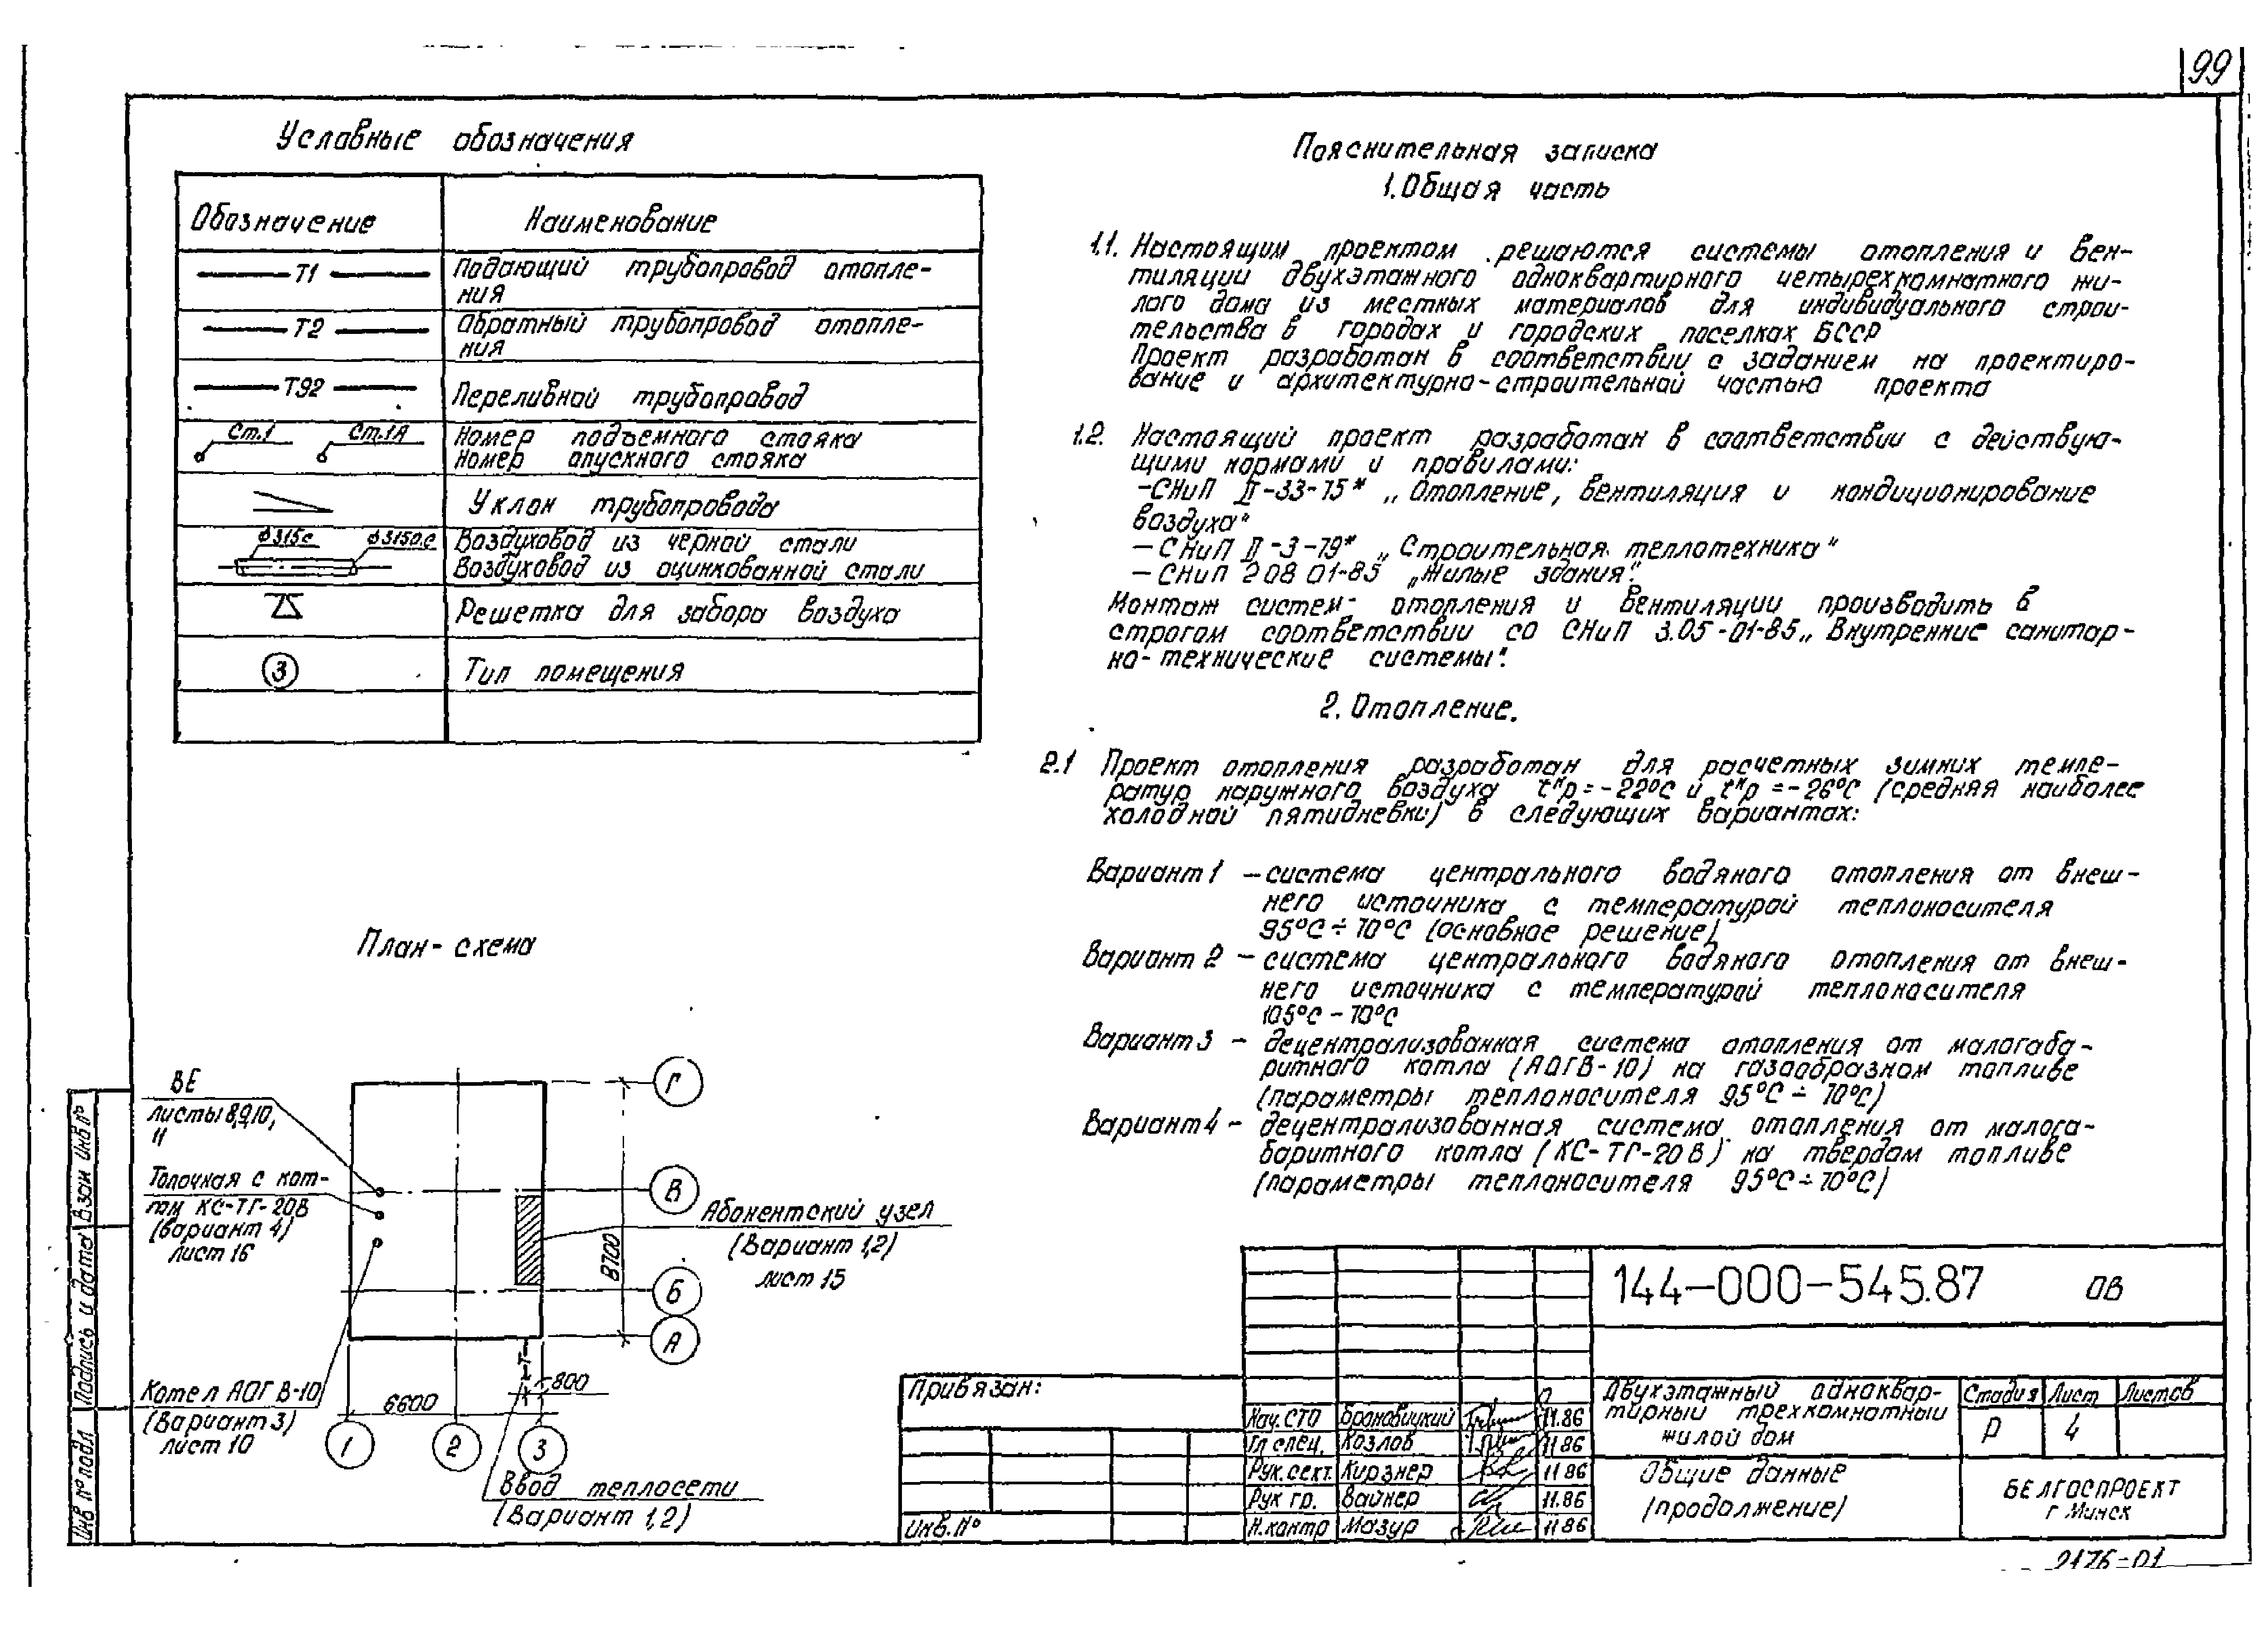 99
Условные обозначения
Обозначение
Наименование
Т1
Подающий трубопровод отопле-
ния
Т2
Обратный трубопровод отопле-
ния
Т92
Переливной трубопровод
Ст.1 Ст.1А
Номер подъемного стояка
Номер опускного стояка
Уклон трубопровода
ф315с ф315о.с
Воздуховод из черной стали
Воздуховод из оцинкованной стали
Решетка для забора воздуха
3
Тип помещения
План-схема
ВЕ
листы 8,9,10,
11
Топочная с кот-
лом КС-ТГ-20В
(вариант 4)
лист 16
Котел АОГВ-10
(Вариант 3)
лист 10
Абонентский узел
(Вариант 1,2)
лист 15
Г
В
Б
А
8700
6600
800
Т
1
2
3
Ввод теплосети
(Вариант 1,2)
Пояснительная записка
1. Общая часть
1.1. Настоящим проектом решаются системы отопления и вен-
тиляции двухэтажного одноквартирного четырехкомнатного жи-
лого дома из местных материалов для индивидуального строи-
тельства в городах и городских поселках БССР
Проект разработан в соответствии с заданием на проектиро-
вание и архитектурно-строительной частью проекта
1.2. Настоящий проект разработан в соответствии с действую-
щими нормами и правилами:
-СНиП II-33-75* „Отопление, вентиляция и кондиционирование
воздуха"
- СНиП II-3-79* „Строительная теплотехника"
- СНиП 2 08 01-85 „Жилые здания".
Монтаж систем отопления и вентиляции производить в
строгом соответствии со СНиП 3.05-01-85 „Внутренние санитар-
но-технические системы".
2. Отопление.
2.1 Проект отопления разработан для расчетных зимних темпе-
ратур наружного воздуха tнр=-22°С и tнр=-26°С (средняя наиболее
холодной пятидневки) в следующих вариантах:
Вариант 1 - система центрального водяного отопления от внеш-
него источника с температурой теплоносителя
95°С÷70°С (основное решение)
Вариант 2 - система центрального водяного отопления от внеш-
него источника с температурой теплоносителя
105°С-70°С
Вариант 3 - децентрализованная система отопления от малогаба-
ритного котла (АОГВ-10) на газообразном топливе
(параметры теплоносителя 95°С÷70°С)
Вариант 4 - децентрализованная система отопления от малога-
баритного котла (КС-ТГ-20В) на твердом топливе
(параметры теплоносителя 95°С÷70°С)
Привязан:
Инв.№
144-000-545.87 ОВ
Нач.СТО Броновицкий 11.86
Гл спец. Козлов 11 86
Рук.сект. Кирзнер 11 86
Рук гр. Вайнер 11.86
Н.контр Мазур 11 86
Двухэтажный одноквар-
тирный трехкомнатный
жилой дом
Стадия Лист Листов
Р 4
Общие данные
(продолжение)
БЕЛГОСПРОЕКТ
г Минск
2176-01
Инв № подл Подпись и дата Взам инв №